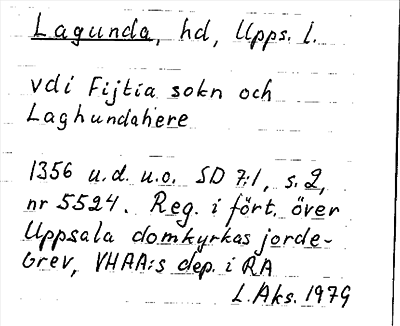 Lagunda, hd, Upps. l.
vdi Fijtia sokn och
Laghundahere
1356 u.d. u.o. SD 7:1, s. 2,
nr 5524. Reg. i fört. över
Uppsala domkyrkas jorde-
brev, VHAA:s dep. i RA
L. Aks. 1979